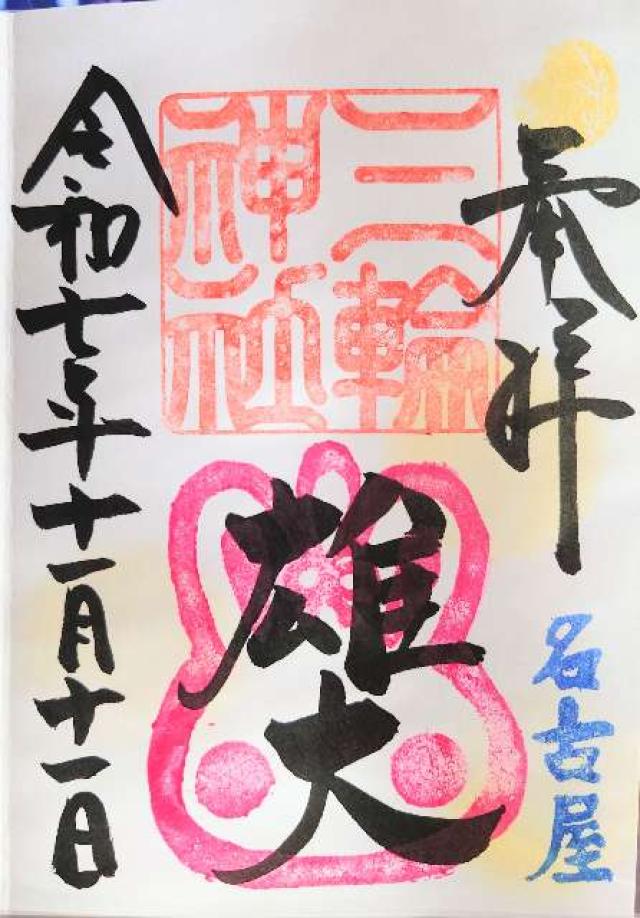 奉拝
名古屋
三輪
神社
雄大
令和七年十一月十一日